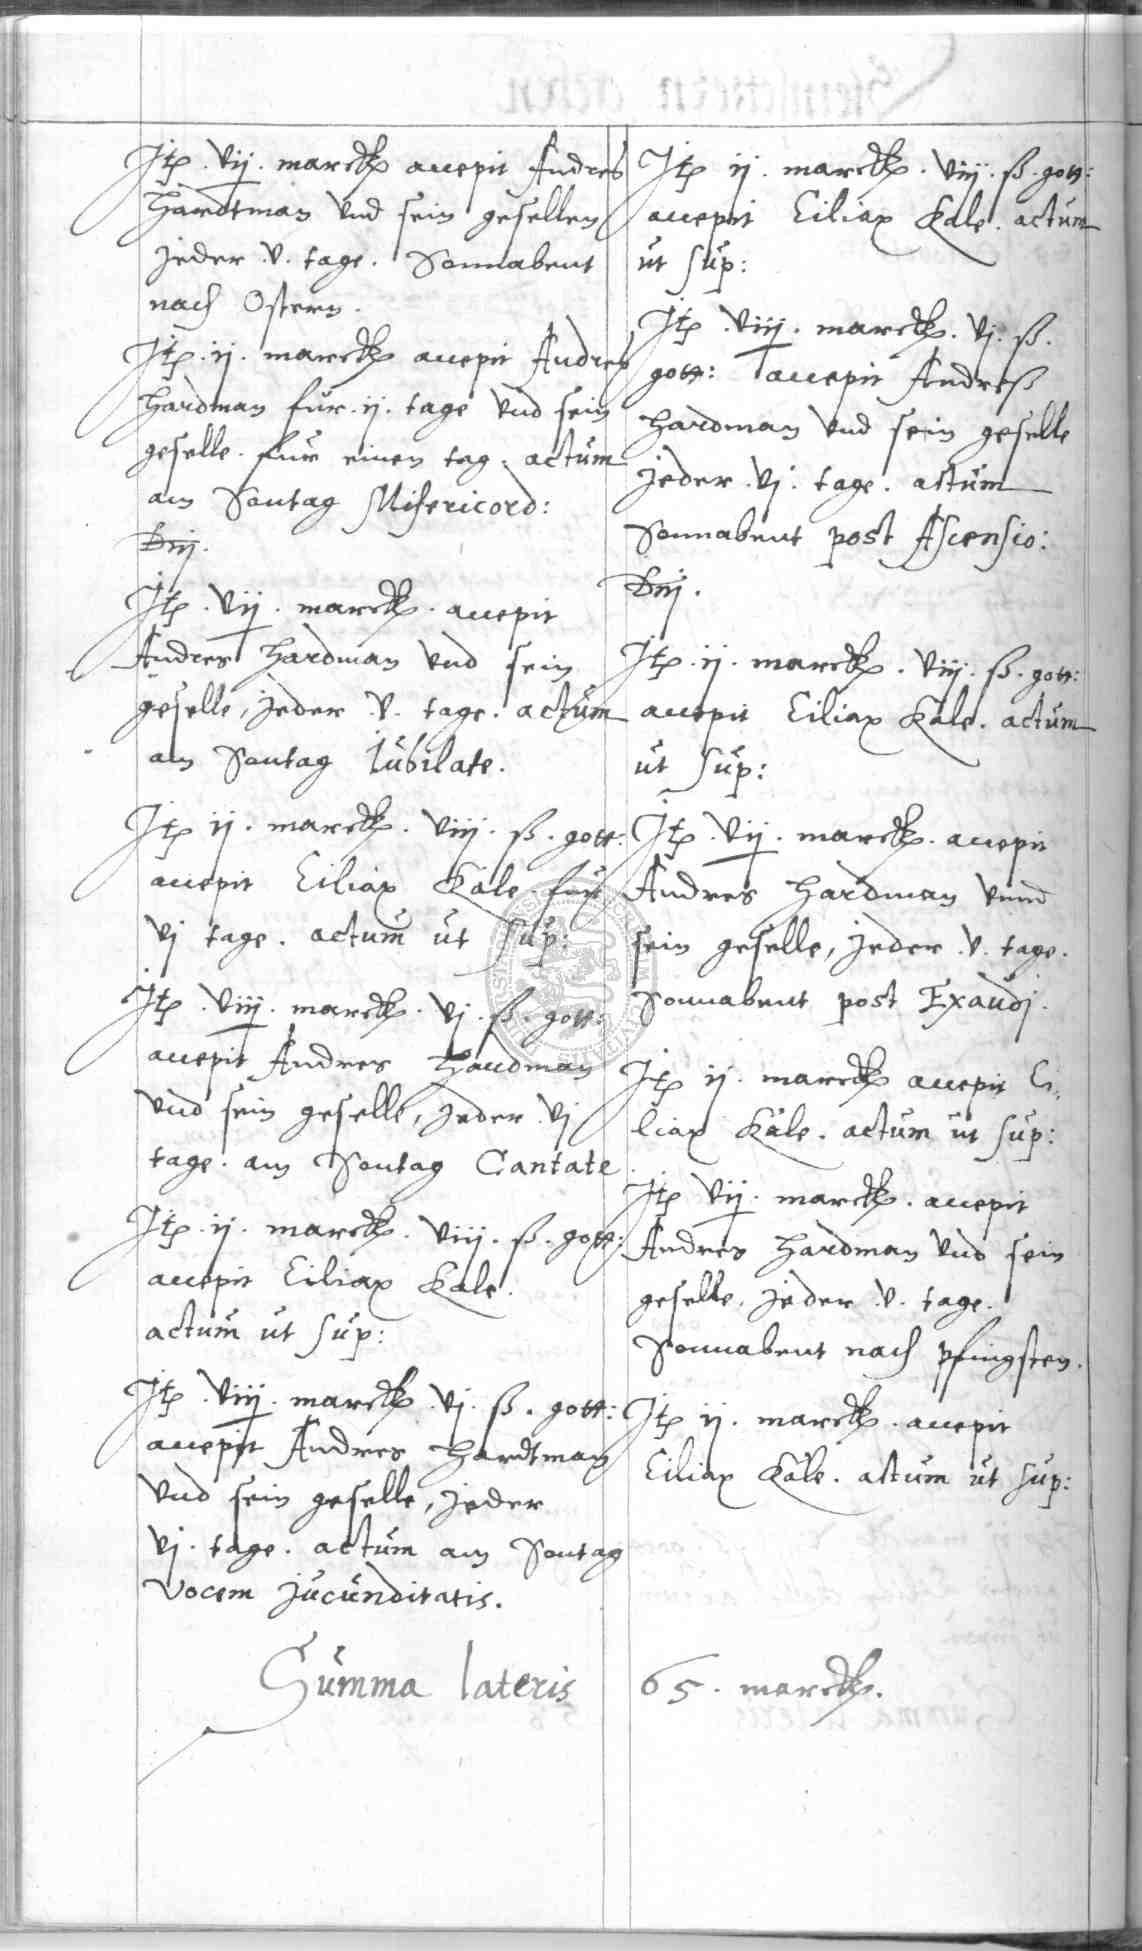 Jtem .vij. marck accepit Andres
Hardtman vnd sein gesellen
jeder .v. tage. Sonnabent
nach Ostern.
Jtem .ij. marck accepit Andres
Hardman fur .ij. tage vnd sein
geselle. fur einen tag. actum
am Sontag Misericord:
Dnj.
Jtem .vij. marck. accepit
Andres Hardman vnd sein
geselle, jeder .v. tage. actum
am Sontag Iubilate.
Jtem ij. marck. viij. ß. gott:
accepit Ciliax Kale. fur
vj tage. actum ut sup:
Jtem .viij. marck. vj. ß. gott:
accepit Andres Hardman
vnd sein geselle, jeder vj
tage. am Sontag Cantate.
Jtem .ij. marck. viij. ß. gott:
accepit Ciliax Kale.
actum ut sup:
Jtem .viij. marck vj. ß. gott:
accepit Andres Hardtman
vnd sein geselle, jeder
vj. tage. actum am Sontag
Vocem jucunditatis.
Jtem ij. marck. viij. ß. gott:
accepit Ciliax Kale. actum
ut sup:
Jtem .viij. marck. vj. ß.
gott: accepit Andreß
Hardman vnd sein geselle
jeder .vj. tage. actum
Sonnabent post Ascensio:
Dnj.
Jtem .ij. marck. viij. ß. gott:
accepit Ciliax Kale. actum
ut sup:
Jtem .vij. marck. accepit
Andres Hardman vnnd
sein geselle, jeder .v. tage.
Sonnabent post Exaudj.
Jtem ij. marck accepit Ci„
liax Kale. actum ut sup:
Jtem vij. marck. accepit
Andres Hardman vnd sein
geselle, jeder .v. tage.
Sonnabent nach pfingsten.
Jtem ij. marck. accepit
Ciliax Kale. actum ut sup:
Summa lateris 65. marck.